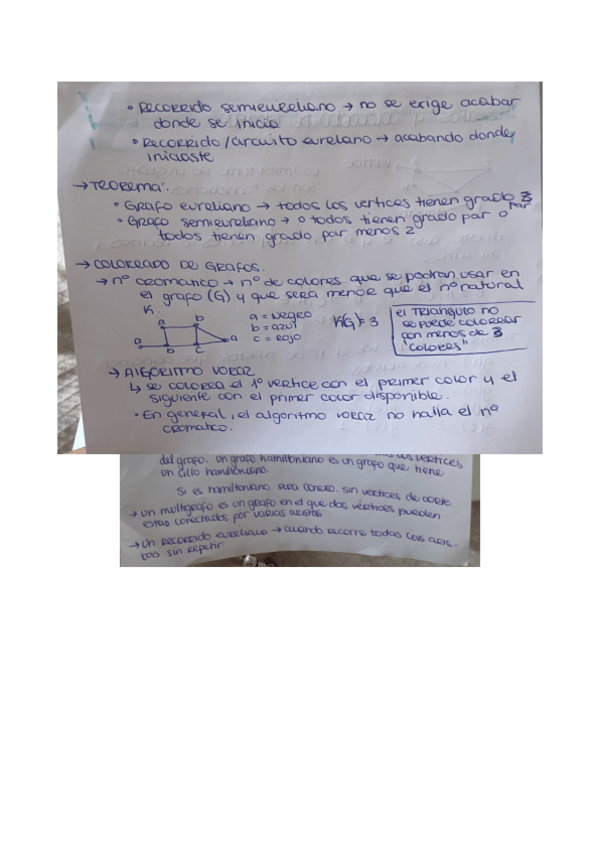 • Recorrido semieureliano → no se exige acabar
donde se inicia
• Recorrido/circuito eureliano → acabando donde
iniciaste
→ TEOREMA:
• Grafo eureliano → todos los vertices tienen grado par
• Grafo semieureliano → o todos tienen grado par o
todos tienen grado par menos 2
→ COLOREADO DE GRAFOS.
→ nº cromatico → nº de colores que se podran usar en
el grafo (G) y que sera menor que el nº natural
K.
a = negro
b = azul
c = rojo
K(G) = 3
el TRIANGULO no
se puede colorear
con menos de 3
"colores"
a b
a b c a
→ ALGORITMO VORAZ
↳ se colorea el 1º vertice con el primer color y el
siguiente con el primer color disponible.
• En general, el algoritmo voraz no halla el nº
cromatico.
los vertices
del grafo. Un grafo hamiltoniano es un grafo que tiene
un ciclo hamiltoniano.
Si es hamiltoniano será conexo, sin vertices de corte.
→ Un multigrafo es un grafo en el que dos vértices pueden
estar conectados por varias aristas
→ Un recorrido eureliano → cuando recorre todas las aris-
tas sin repetir